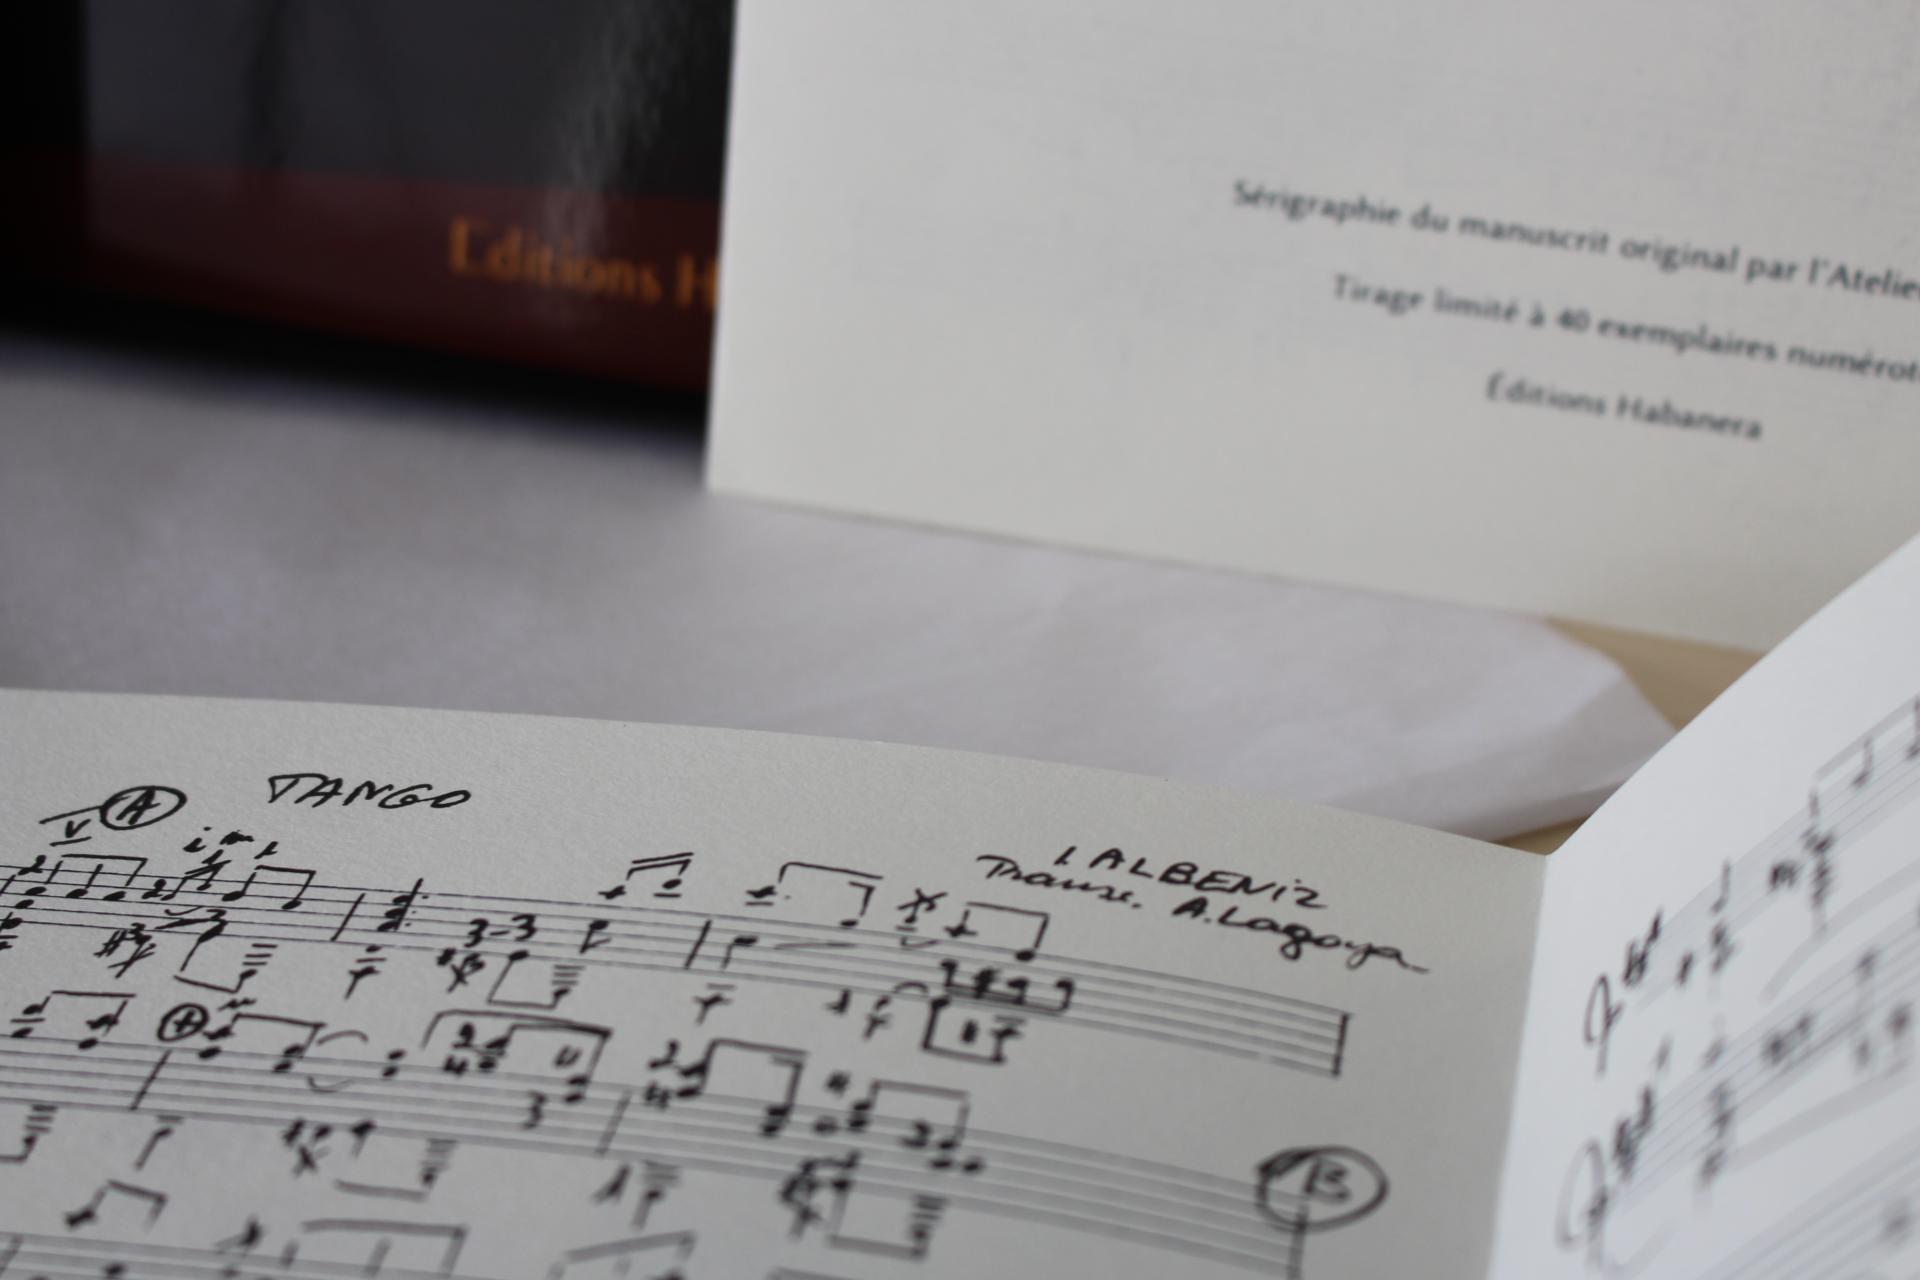 Editions H
Sérigraphie du manuscrit original par l'Atelie
Tirage limité à 40 exemplaires numérot
Éditions Habanera
A
TANGO
V
i m i
I ALBENIZ
Transc. A. Lagoya
3-3
A
3
B